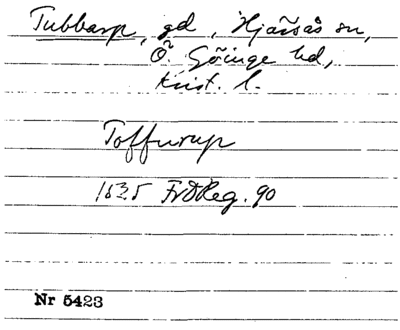 Tubbarp, gd, Hjärsås sn,
Ö. Göinge hd,
Krist. l.
Toffurup
1535 FrDReg. 90
Nr 5423